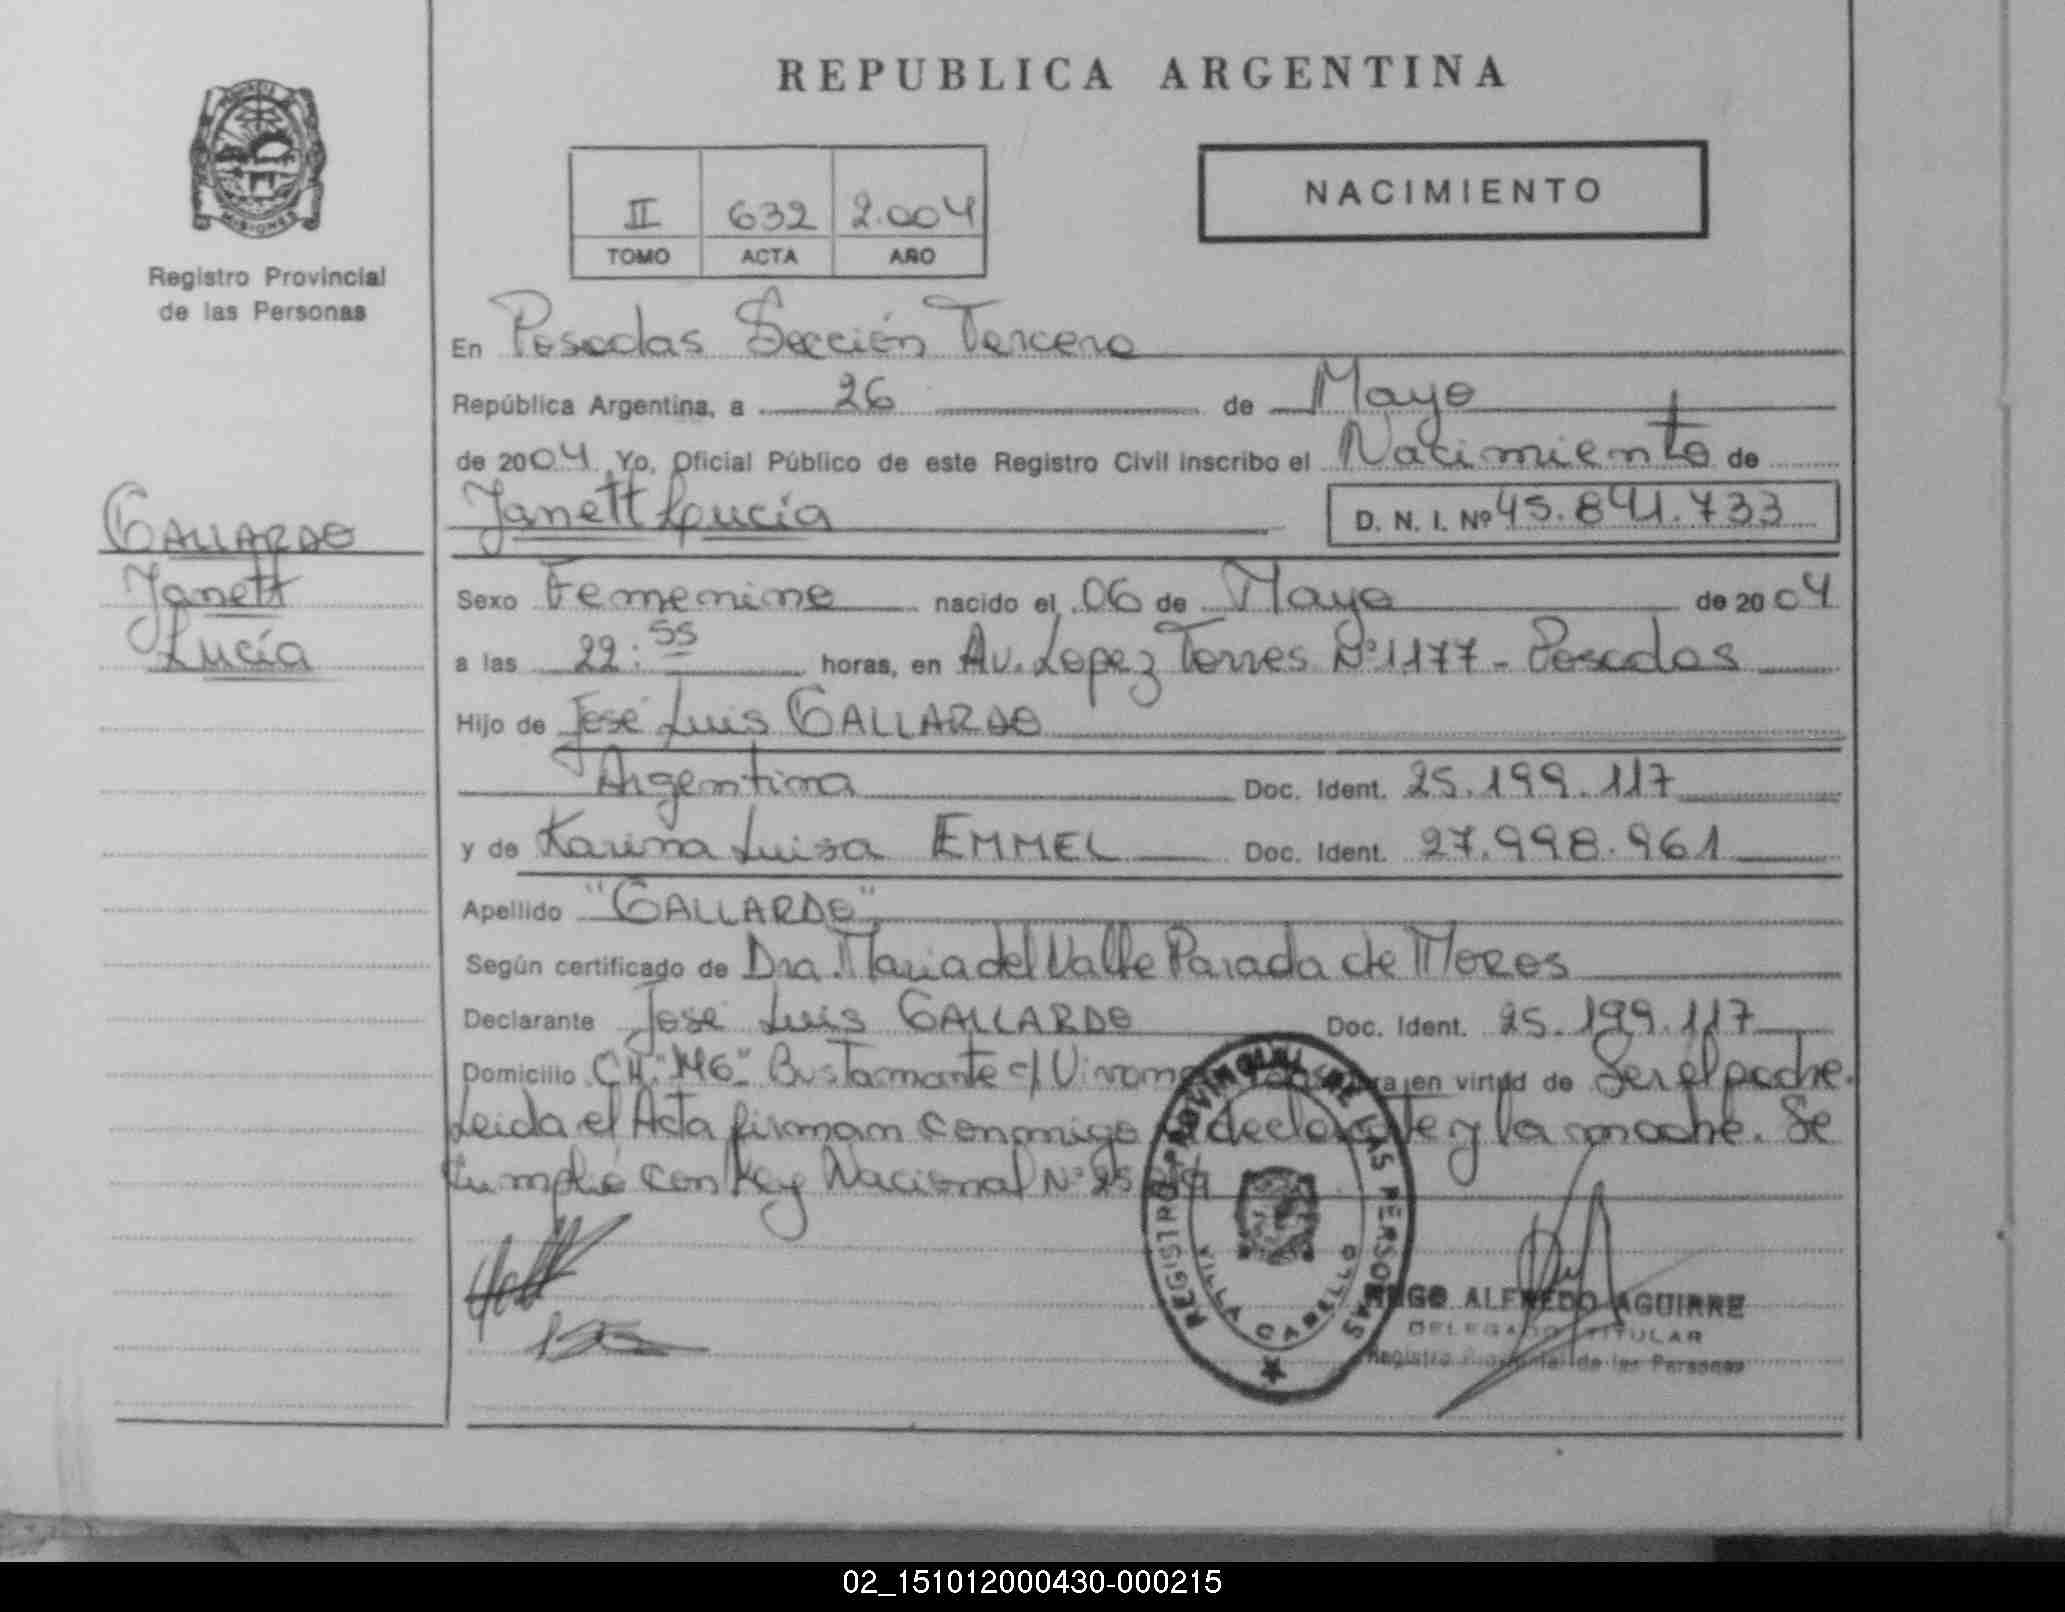 REPUBLICA ARGENTINA
II 632 2.004
TOMO ACTA AÑO
NACIMIENTO
PROVINCIA DE MISIONES
Registro Provincial
de las Personas
GALLARDO
Janett
Lucía
En Posadas Sección Tercera
República Argentina, a 26 de Mayo
de 2004 Yo, Oficial Público de este Registro Civil inscribo el Nacimiento de
Janett Lucía D. N. I. Nº 45.841.733
Sexo Femenino nacido el 06 de Mayo de 2004
a las 22:55 horas, en Av. Lopez Torres Nº 1177 - Posadas
Hijo de José Luis GALLARDO
Argentina Doc. Ident. 25.199.117
y de Karina Luisa EMMEL Doc. Ident. 27.998.961
Apellido "GALLARDO"
Según certificado de Dra. Maria del Valle Parada de Moros
Declarante José Luis GALLARDO Doc. Ident. 25.199.117
Domicilio CH. "146" Bustamante c/ en virtud de Ser el padre.
Leida el Acta firman conmigo declarante y la madre. Se
cumplió con Ley Nacional Nº
REGISTRO PROVINCIAL DE LAS PERSONAS
VILLA CABELLO
HUGO ALFREDO AGUIRRE
DELEGADO TITULAR
Registro Provincial de las Personas
02_151012000430-000215